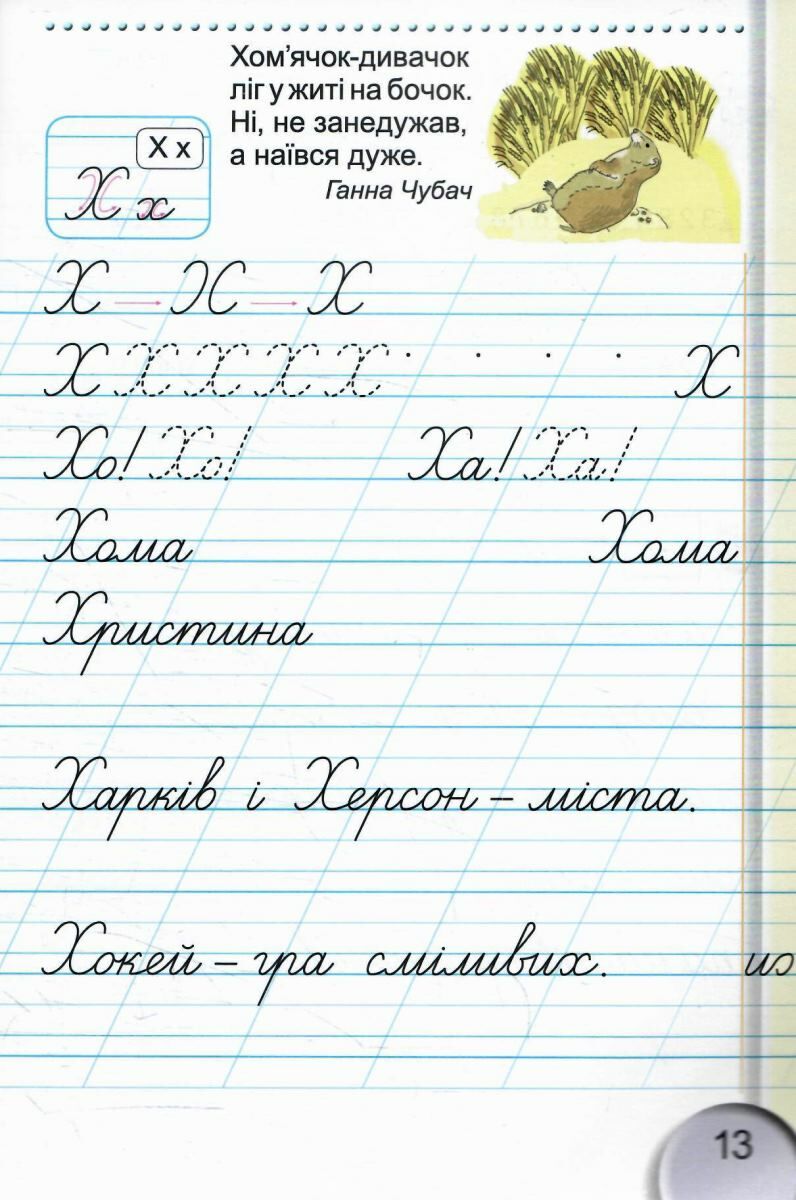 Хом'ячок-дивачок
ліг у житі на бочок.
Ні, не занедужав,
а наївся дуже.
Ганна Чубач
Х х
Х х
Х Х Х
Х Х Х Х Х Х
Хо! Хо! Ха! Ха!
Хома Хома
Христина
Харків і Херсон – міста.
Хокей – гра сміливих. их
13